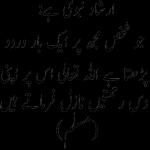 ارشاد نبوی ہے:
جو شخص مجھ پر ایک بار درود
پڑھتا ہے اللہ تعالیٰ اس پر اپنی
دس رحمتیں نازل فرماتے ہیں
(مسلم)